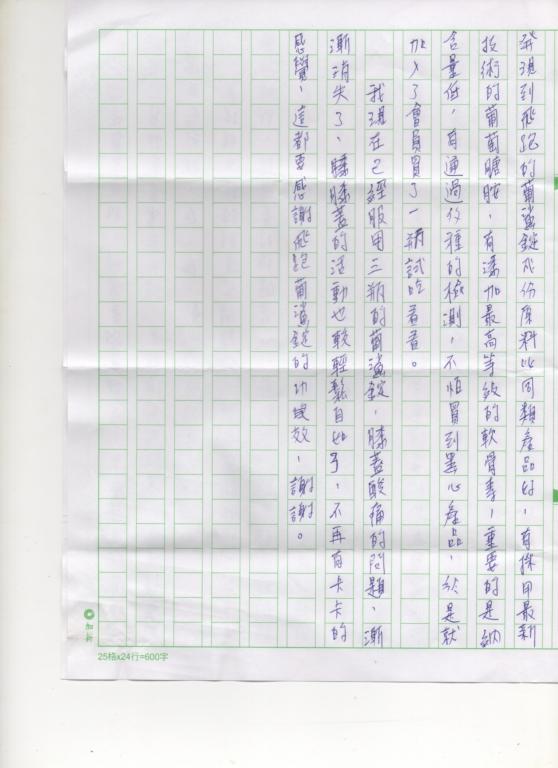 發現到飛跑的葡鯊錠成份原料比同類產品好，有採用最新
技術的葡萄糖胺，有添加最高等級的軟骨素，重要的是鈉
含量低，有通過各種的檢測，不怕買到黑心產品，於是就
加入了會員買了一瓶試吃看看。
我現在已經服用三瓶的葡鯊錠，膝蓋酸痛的問題，漸
漸消失了，膝膝蓋的活動也較輕鬆自如了，不再有卡卡的
感覺，這都要感謝飛跑葡鯊錠的功效，謝謝。
25格x24行=600字